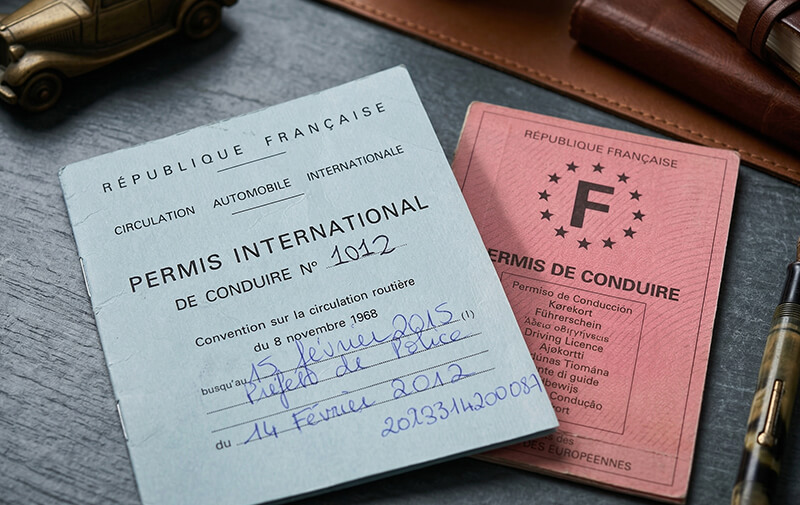 RÉPUBLIQUE FRANÇAISE
CIRCULATION AUTOMOBILE INTERNATIONALE
PERMIS INTERNATIONAL
DE CONDUIRE N° 1012
Convention sur la circulation routière
du 8 novembre 1968 (1)
busqu'au 15 février 2015
Préfet de Police
du 14 Février 2012
RÉPUBLIQUE FRANÇAISE
F
ERMIS DE CONDUIRE
Permiso de Conducción
Kørekort
Führerschein
Άδεια οδιγήγησεις
Driving Licence
Ajøkortti
dúnas Tiomána
nte di guida
bewijs
Condução
ort
des
DES EUROPEENNES